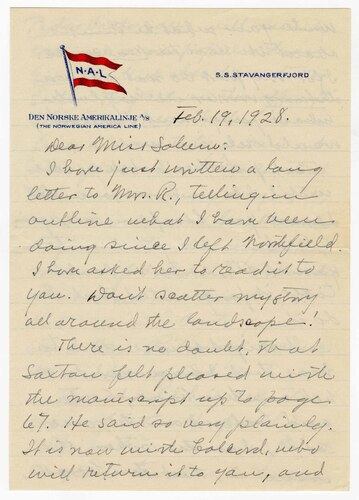 N·A·L
S.S. STAVANGERFJORD
DEN NORSKE AMERIKALINJE A/S
(THE NORWEGIAN AMERICA LINE)
Feb. 19, 1928.
Dear Miss
I have just written a long
letter to Mrs. R., telling in
outline what I have been
doing since I left Northfield.
I have asked her to read it to
you. Don't scatter my story
all around the landscape!
There is no doubt, that
Saxton felt pleased with
the manuscript up to page
67. He said so very plainly.
It is now with Colcord, who
will return it to you, and